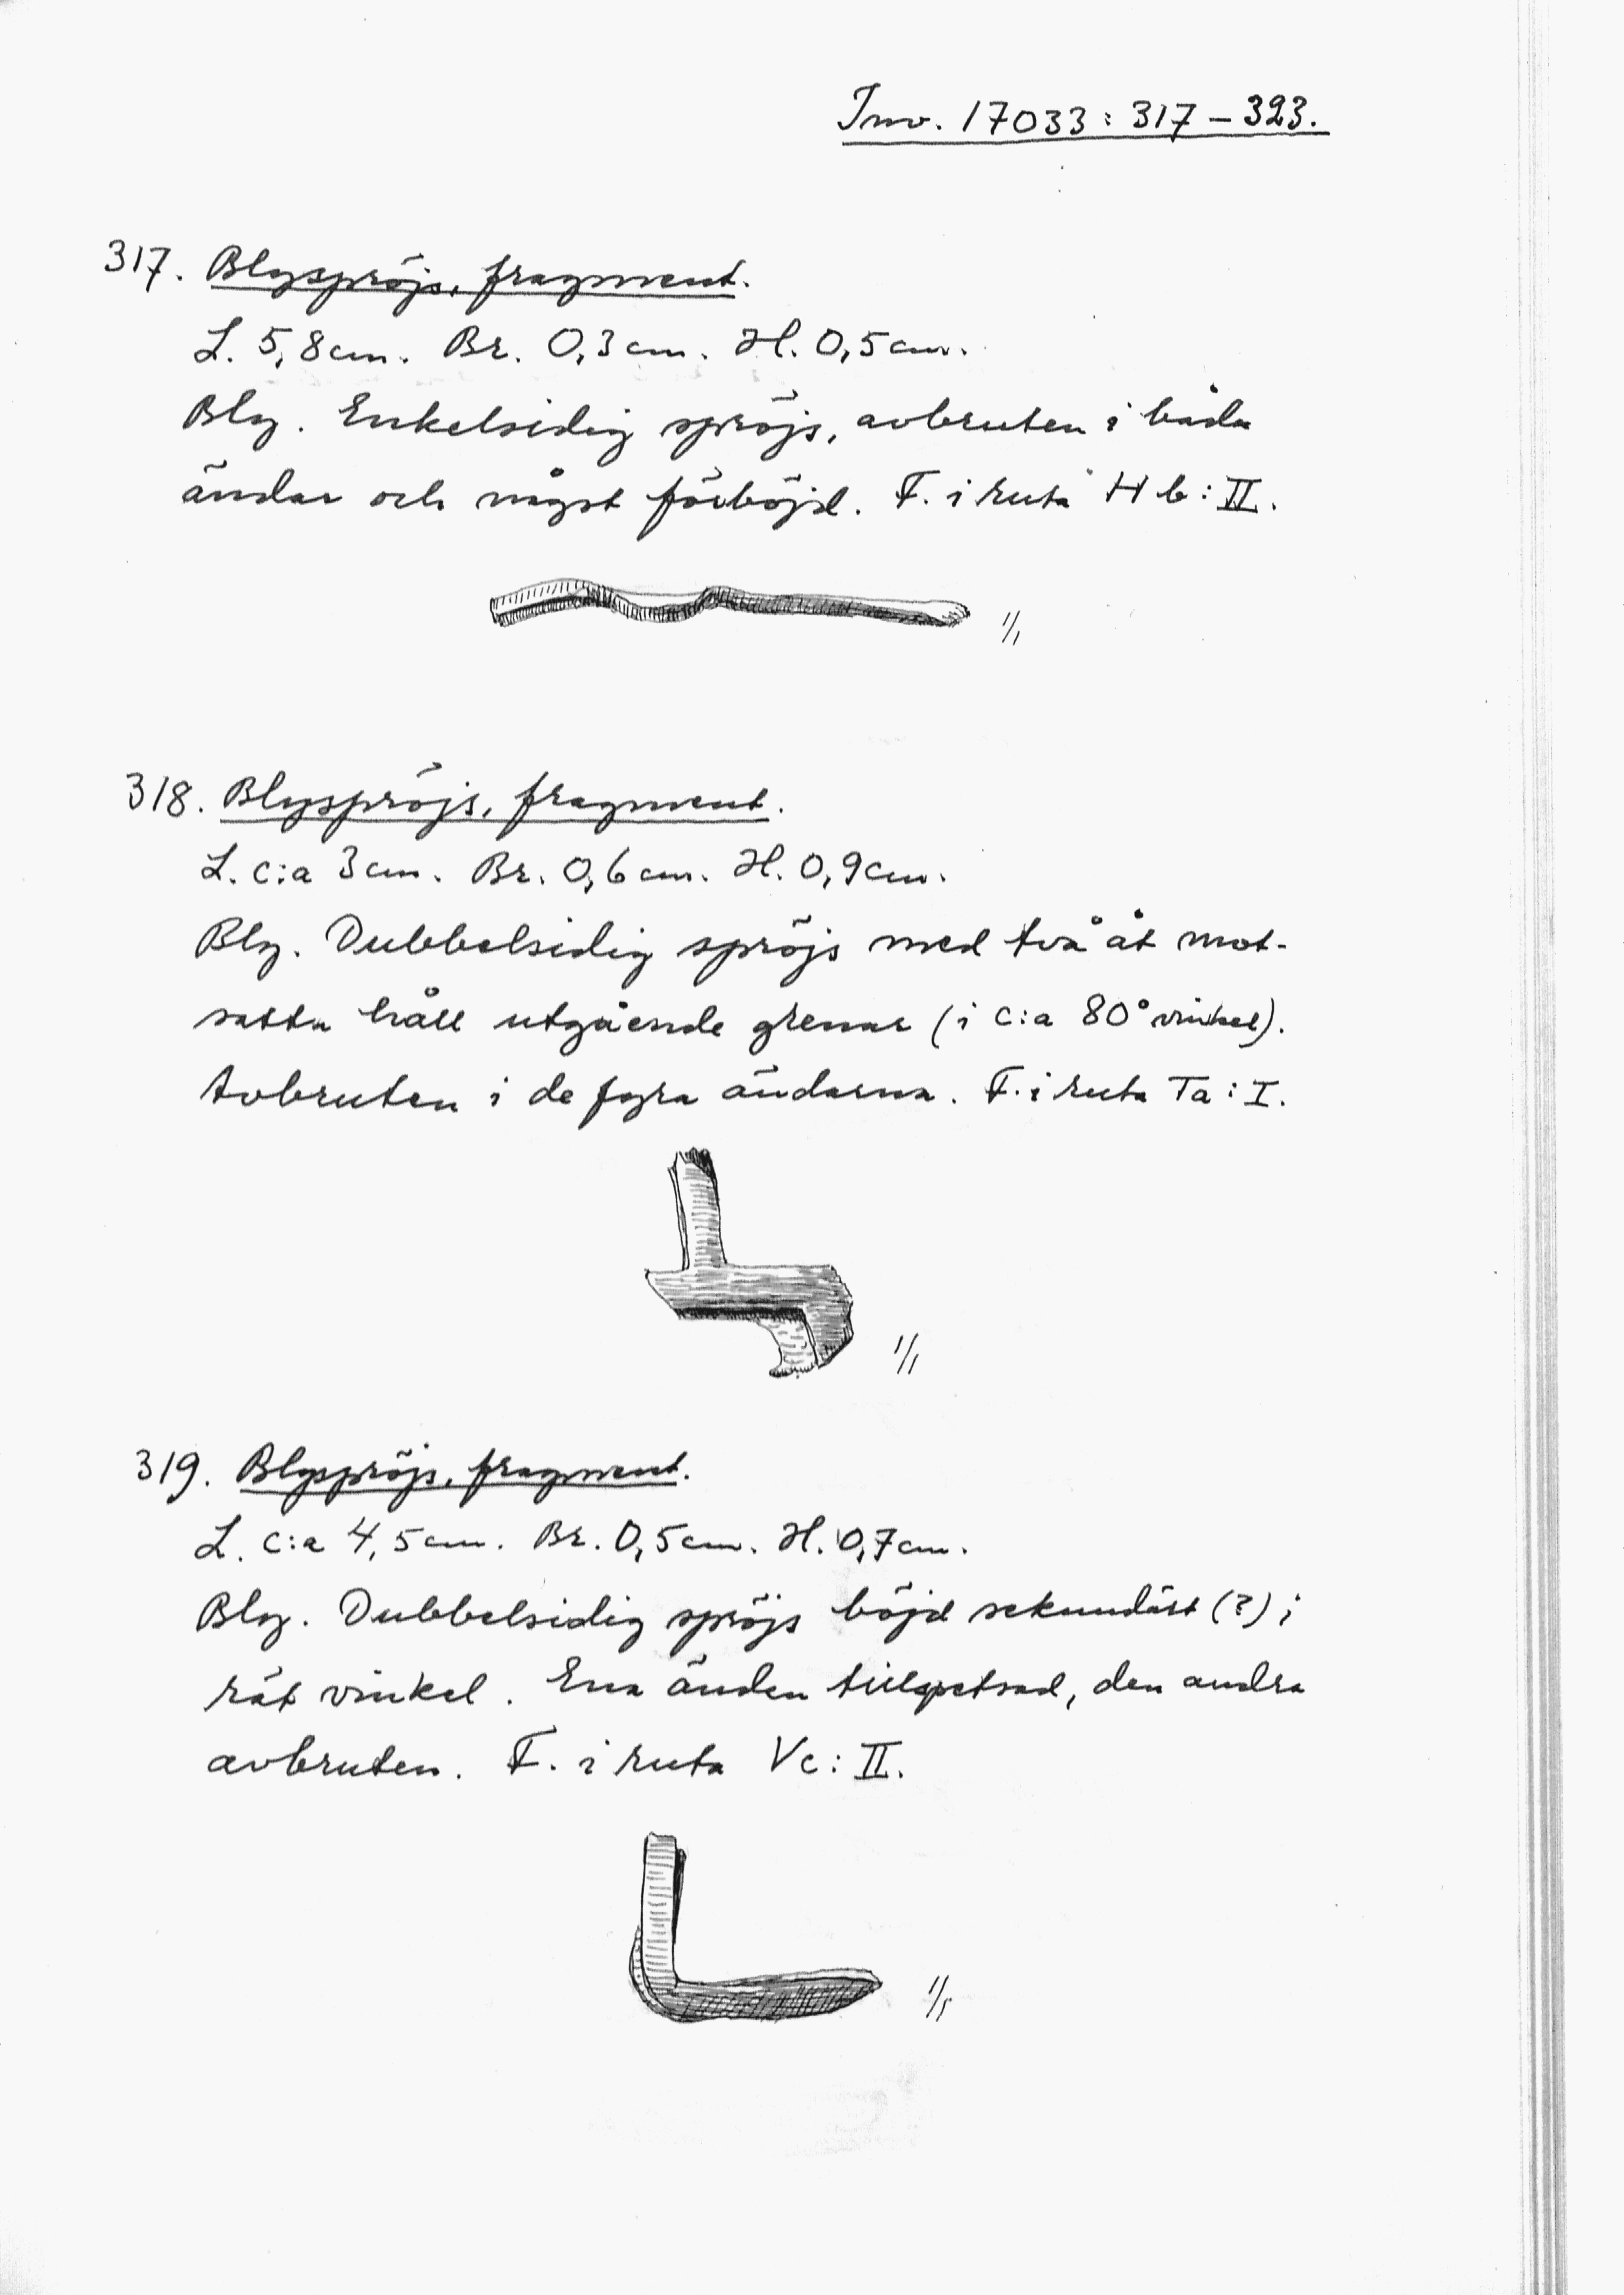 Inv. 17033:317–323.
317. Blyspröjs, fragment.
L. 5,8cm. Br. 0,3cm. H. 0,5cm.
Bly. Enkelsidig spröjs, avbruten i båda
ändar och något förböjd. F. i ruta Hb:II.
1/1
318. Blyspröjs, fragment.
L. c:a 3cm. Br. 0,6cm. H. 0,9cm.
Bly. Dubbelsidig spröjs med två åt mot-
satta håll utgående grenar (i c:a 80° vinkel).
Avbruten i de fyra ändarna. F. i ruta Ta:I.
1/1
319. Blyspröjs, fragment.
L. c:a 4,5cm. Br. 0,5cm. H. 0,7cm.
Bly. Dubbelsidig spröjs böjd sekundärt (?) i
rät vinkel. Ena änden tillspetsad, den andra
avbruten. F. i ruta Vc:II.
1/1